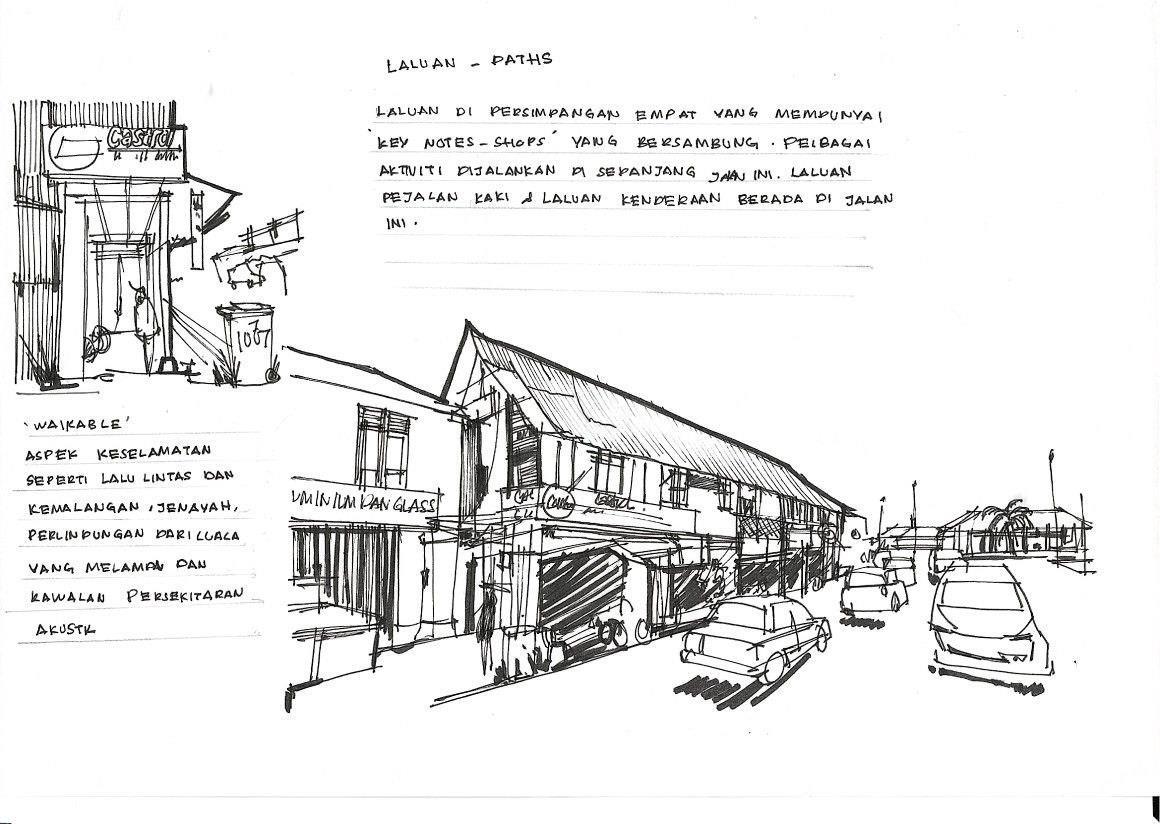 LALUAN - PATHS
LALUAN DI PERSIMPANGAN EMPAT YANG MEMPUNYAI
'KEY NOTES-SHOPS' YANG BERSAMBUNG. PELBAGAI
AKTIVITI DIJALANKAN DI SEPANJANG JALAN INI. LALUAN
PEJALAN KAKI & LALUAN KENDERAAN BERADA DI JALAN
INI.
Castrol
1007
'WALKABLE'
ASPEK KESELAMATAN
SEPERTI LALU LINTAS DAN
KEMALANGAN, JENAYAH,
PERLINDUNGAN DARI CUACA
YANG MELAMPAU DAN
KAWALAN PERSEKITARAN
AKUSTIK
UMINIUM DAN GLASS